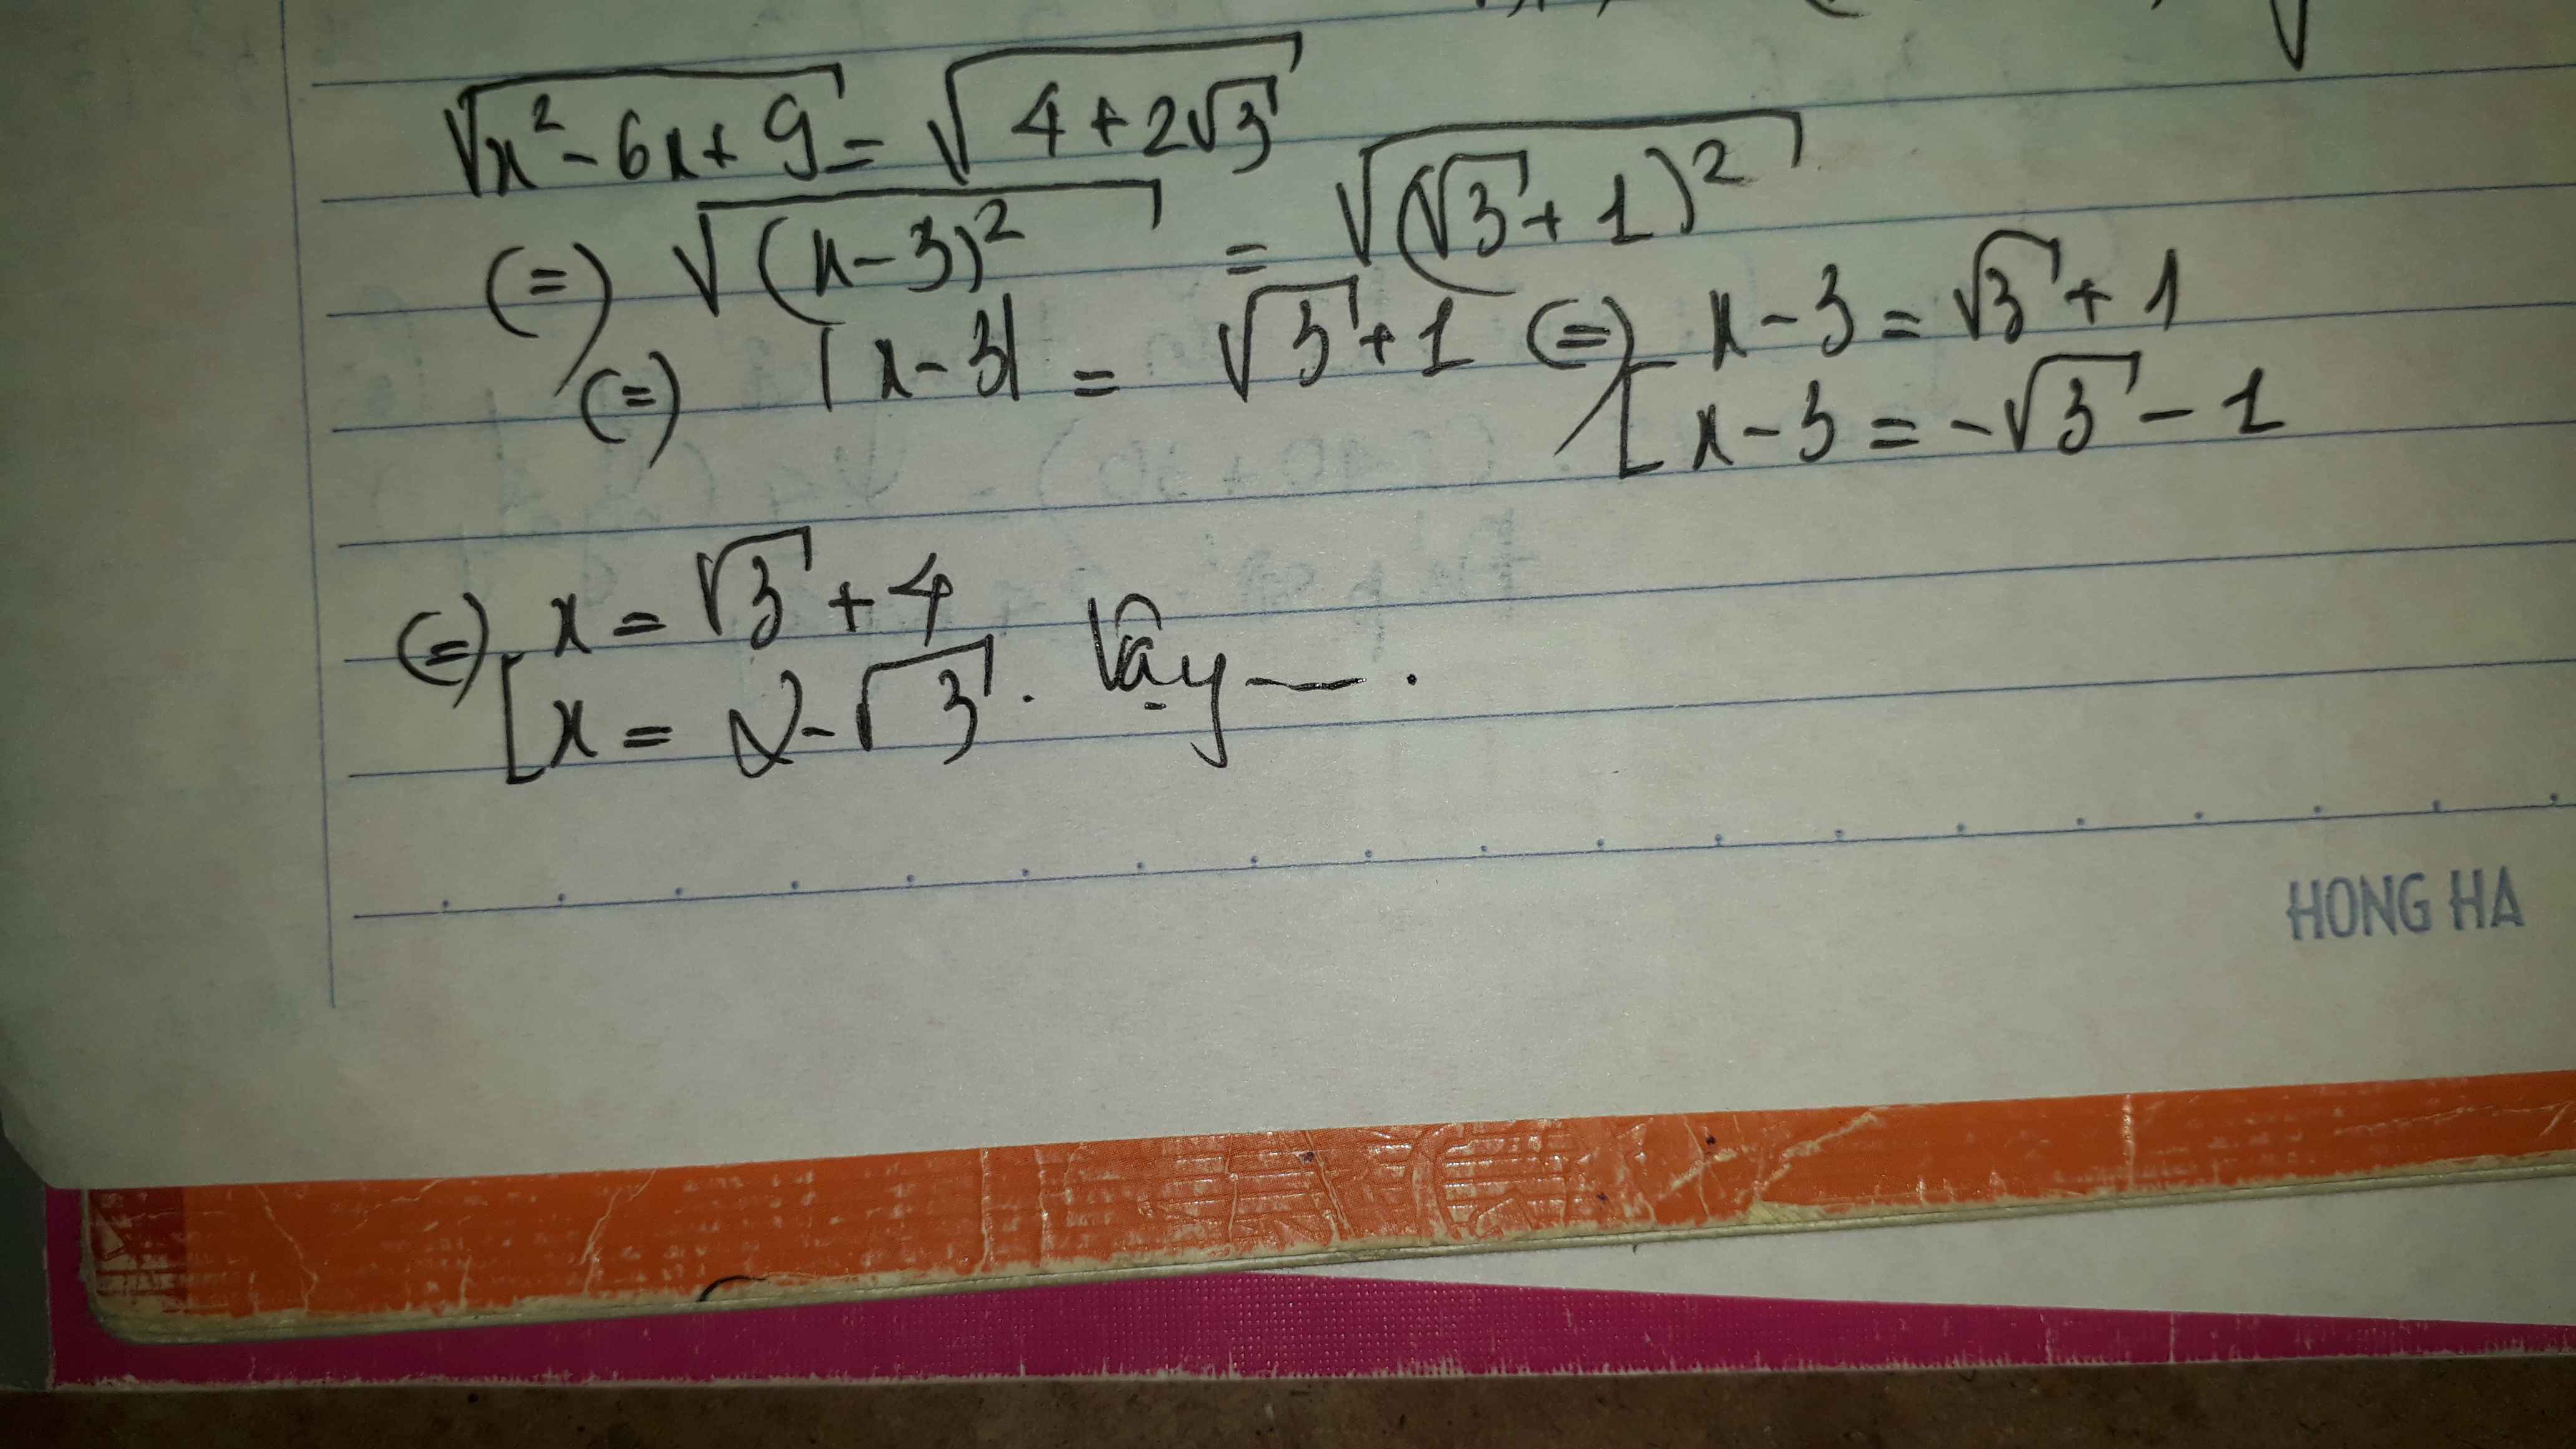 √(x² - 6x + 9) = √(4 + 2√3)
(=) √((x-3)²) = √((√3 + 1)²)
(=) |x-3| = √3 + 1 (=) [ x-3 = √3 + 1
x-3 = -√3 - 1
(=) [ x = √3 + 4
x = 2-√3. Vậy —.
HONG HA